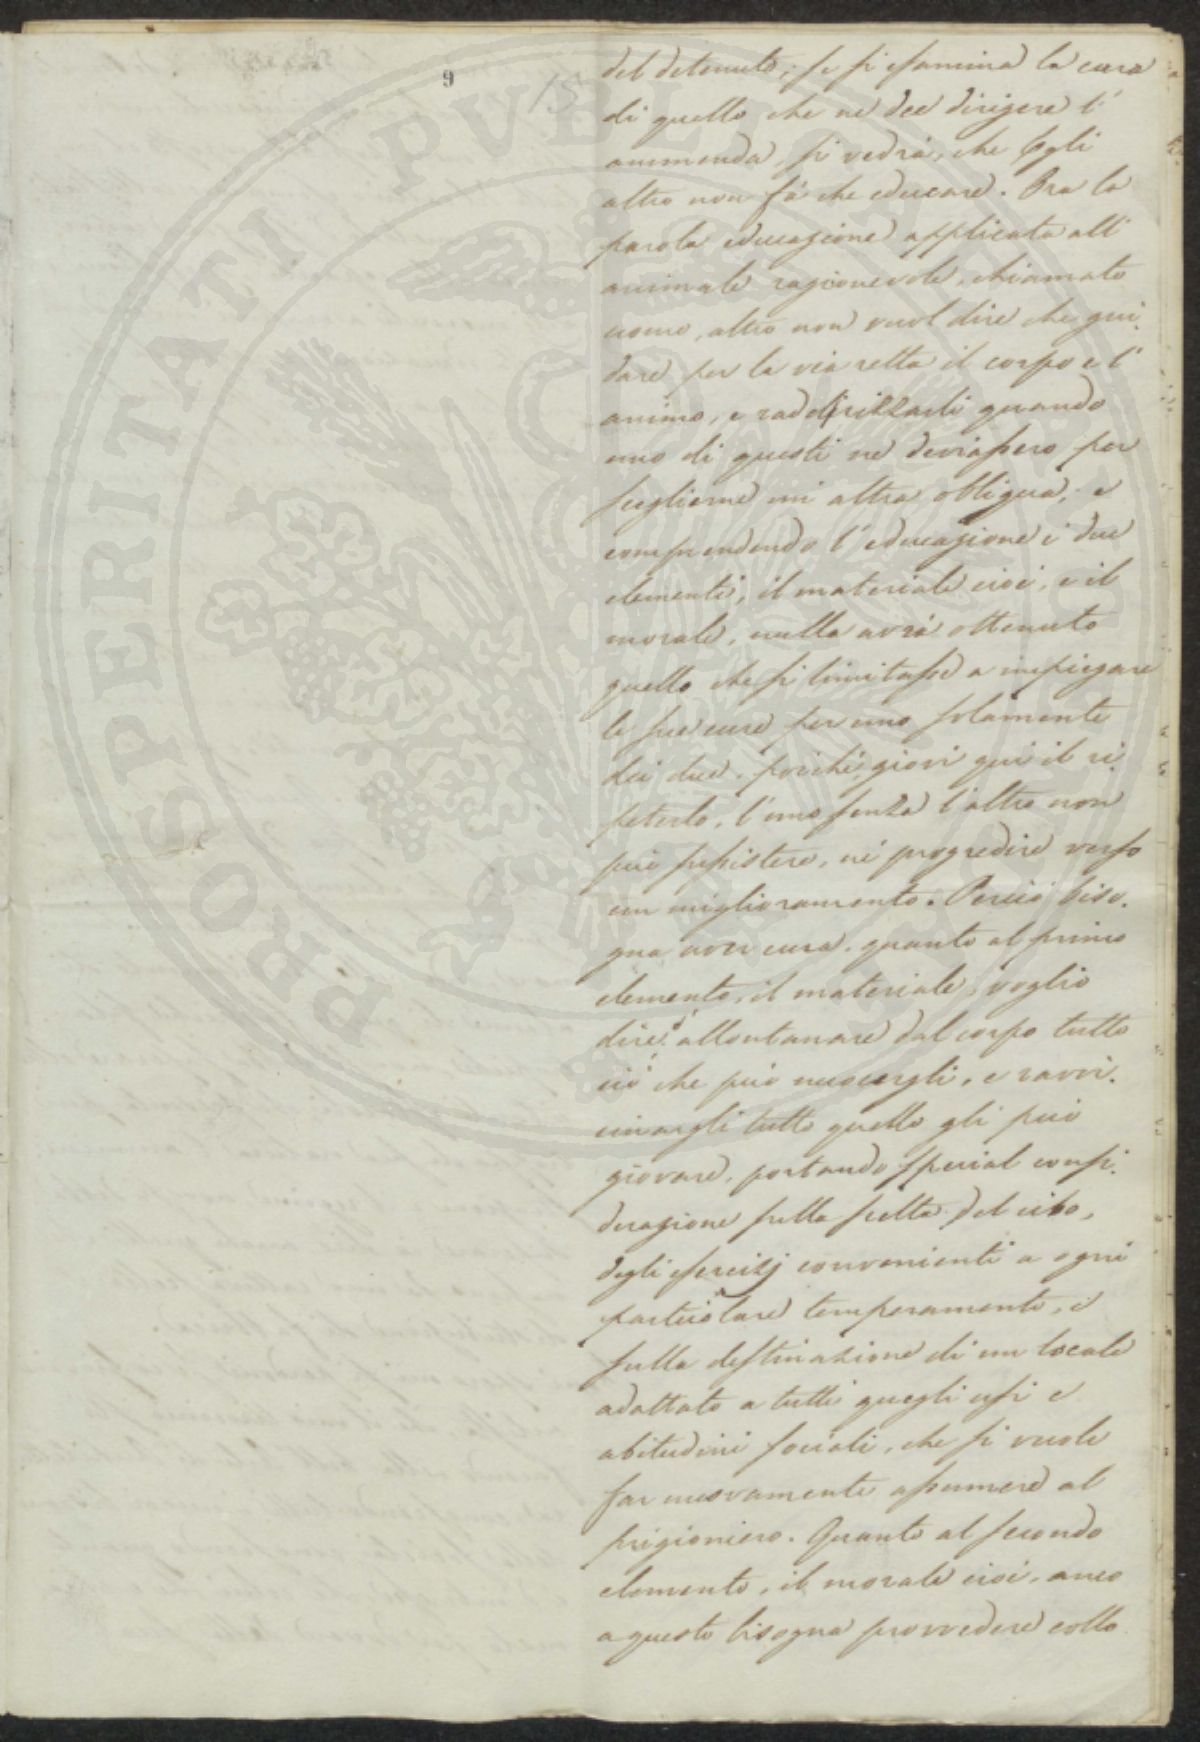 9
15
del detenuto; se si esamina la cura
di quello che ne dee dirigere l'
ammenda, si vedrà, che Egli
altro non fà che educare. Ora la
parola educazione applicata all'
animale ragionevole, chiamato
uomo, altro non vuol dire che gui-
dare per la via retta il corpo e l'
animo, e raddirizzarli quando
uno di questi ne deviassero per
sceglierne un' altra obliqua; e
comprendendo l'educazione i due
elementi, il materiale cioè, e il
morale, nulla avrà ottenuto
quello che si limitasse a impiegare
le sue cure per uno solamente
dei due, poichè, giovi qui il ri-
peterlo, l'uno senza l'altro non
può sussistere, nè progredire verso
un miglioramento. Perciò biso-
gna aver cura, quanto al primo
elemento, il materiale, voglio
dire d'allontanare dal corpo tutto
ciò che può nuocergli, e ravvi-
cinargli tutto quello gli può
giovare, portando special consi-
derazione sulla scelta del cibo,
degli esercizj convenienti a ogni
particolare temperamento, e
sulla destinazione di un locale
adattato a tutti quegli usi e
abitudini sociali, che si vuole
far nuovamente assumere al
prigioniero. Quanto al secondo
elemento, il morale cioè, anco
a questo bisogna provvedere collo
PROSPERITATI PVBLICAE